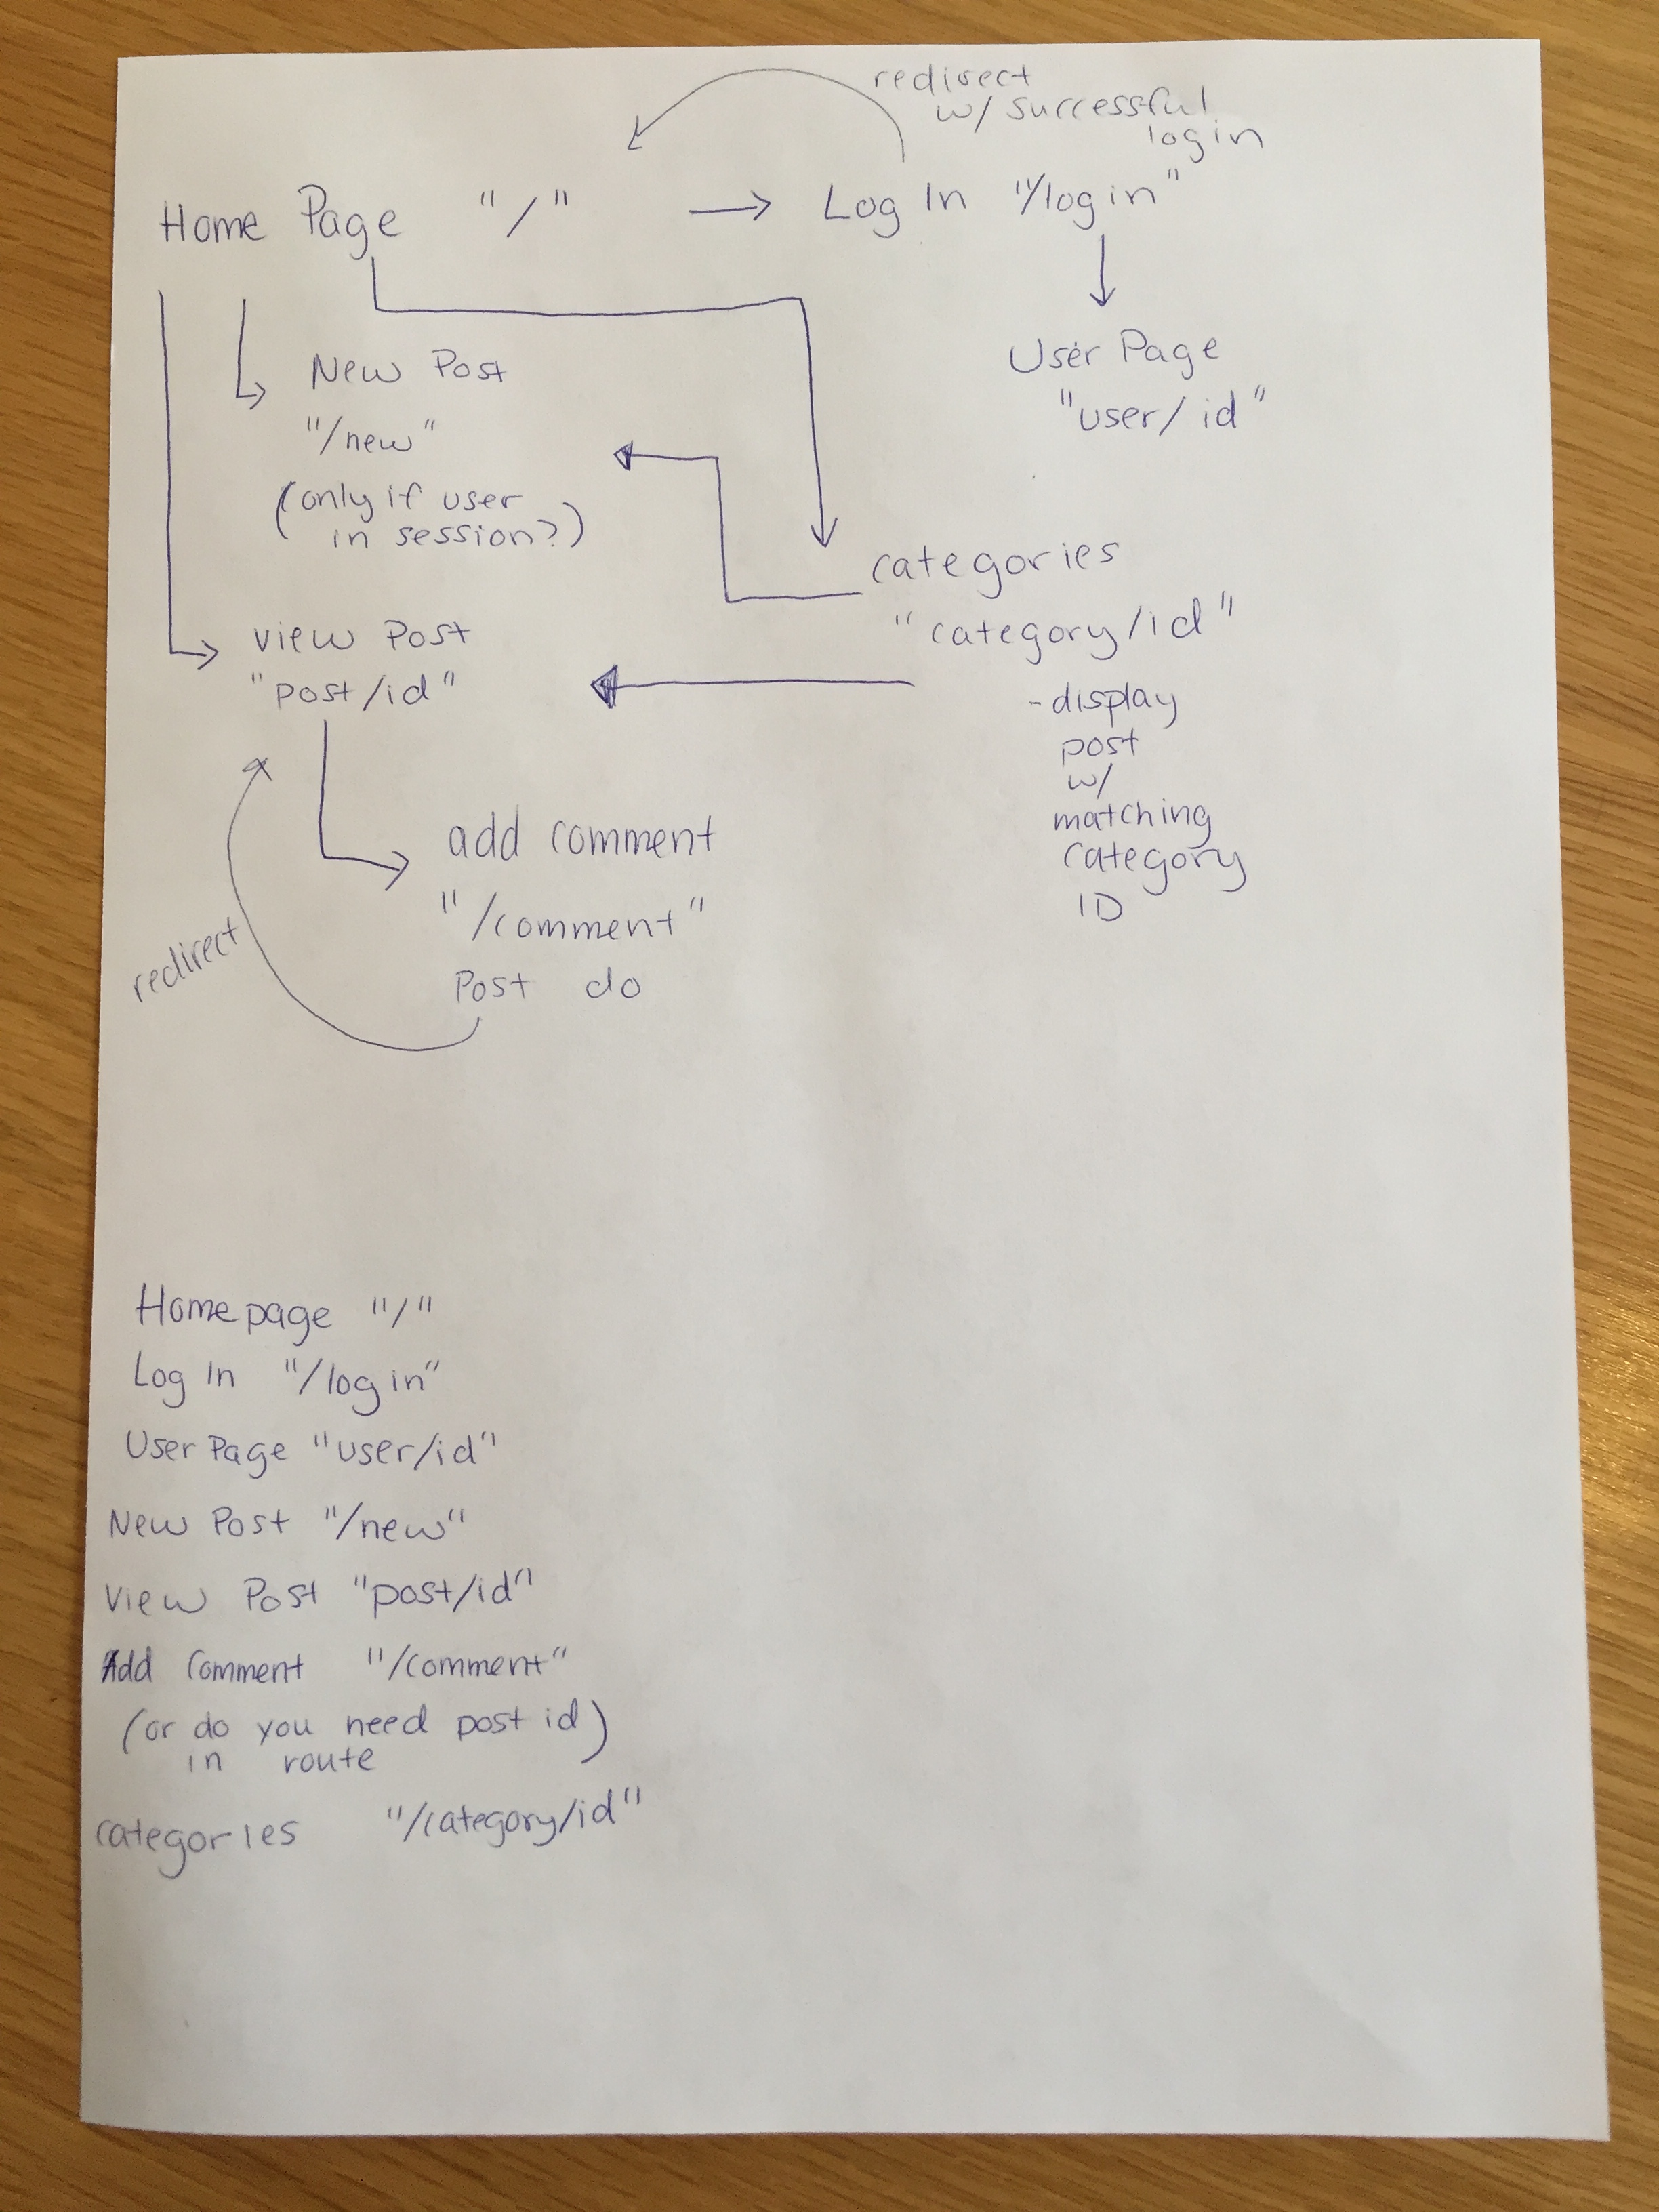 redirect
w/ successful
login
Home Page "/" → Log In "/login"
New Post
"/new"
(only if user
in session?)
User Page
"user/id"
categories
"category/id"
- display
post
w/
matching
category
ID
view Post
"post/id"
add comment
"/comment"
Post do
redirect
Homepage "/"
Log In "/login"
User Page "user/id"
New Post "/new"
View Post "post/id"
Add Comment "/comment"
(or do you need post id)
in route
categories "/category/id"